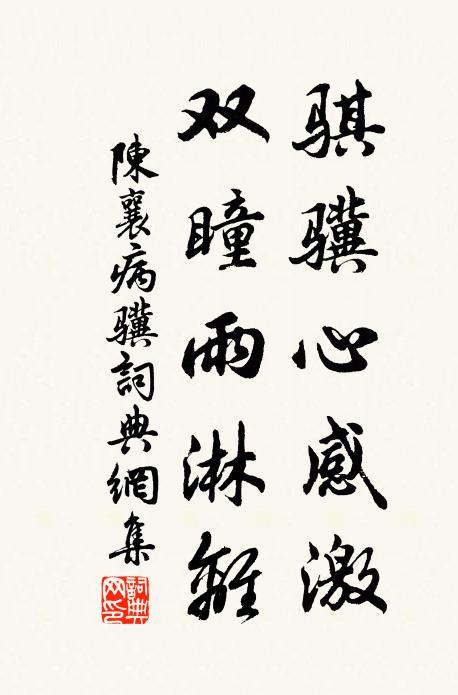 骐骥心感激
双瞳雨淋離
陳襄病骥詞典網集
詞典网印